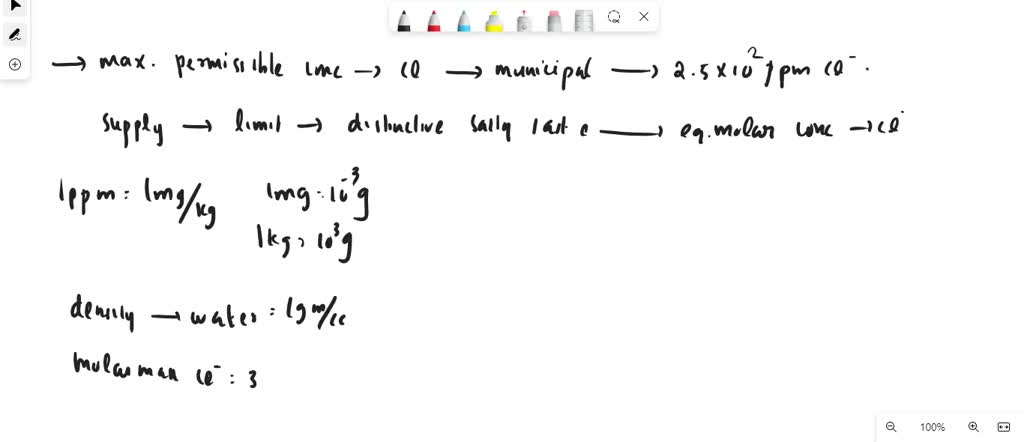 → max. permissible conc → Cl → municipal → 2.5×10² ppm Cl⁻.
supply → limit → distinctive salty taste → eq. molar conc → Cl⁻
1ppm = 1mg/kg 1mg = 10⁻³g
1kg = 10³g
density → water = 1gm/cc
molar mass Cl⁻ : 3
100%